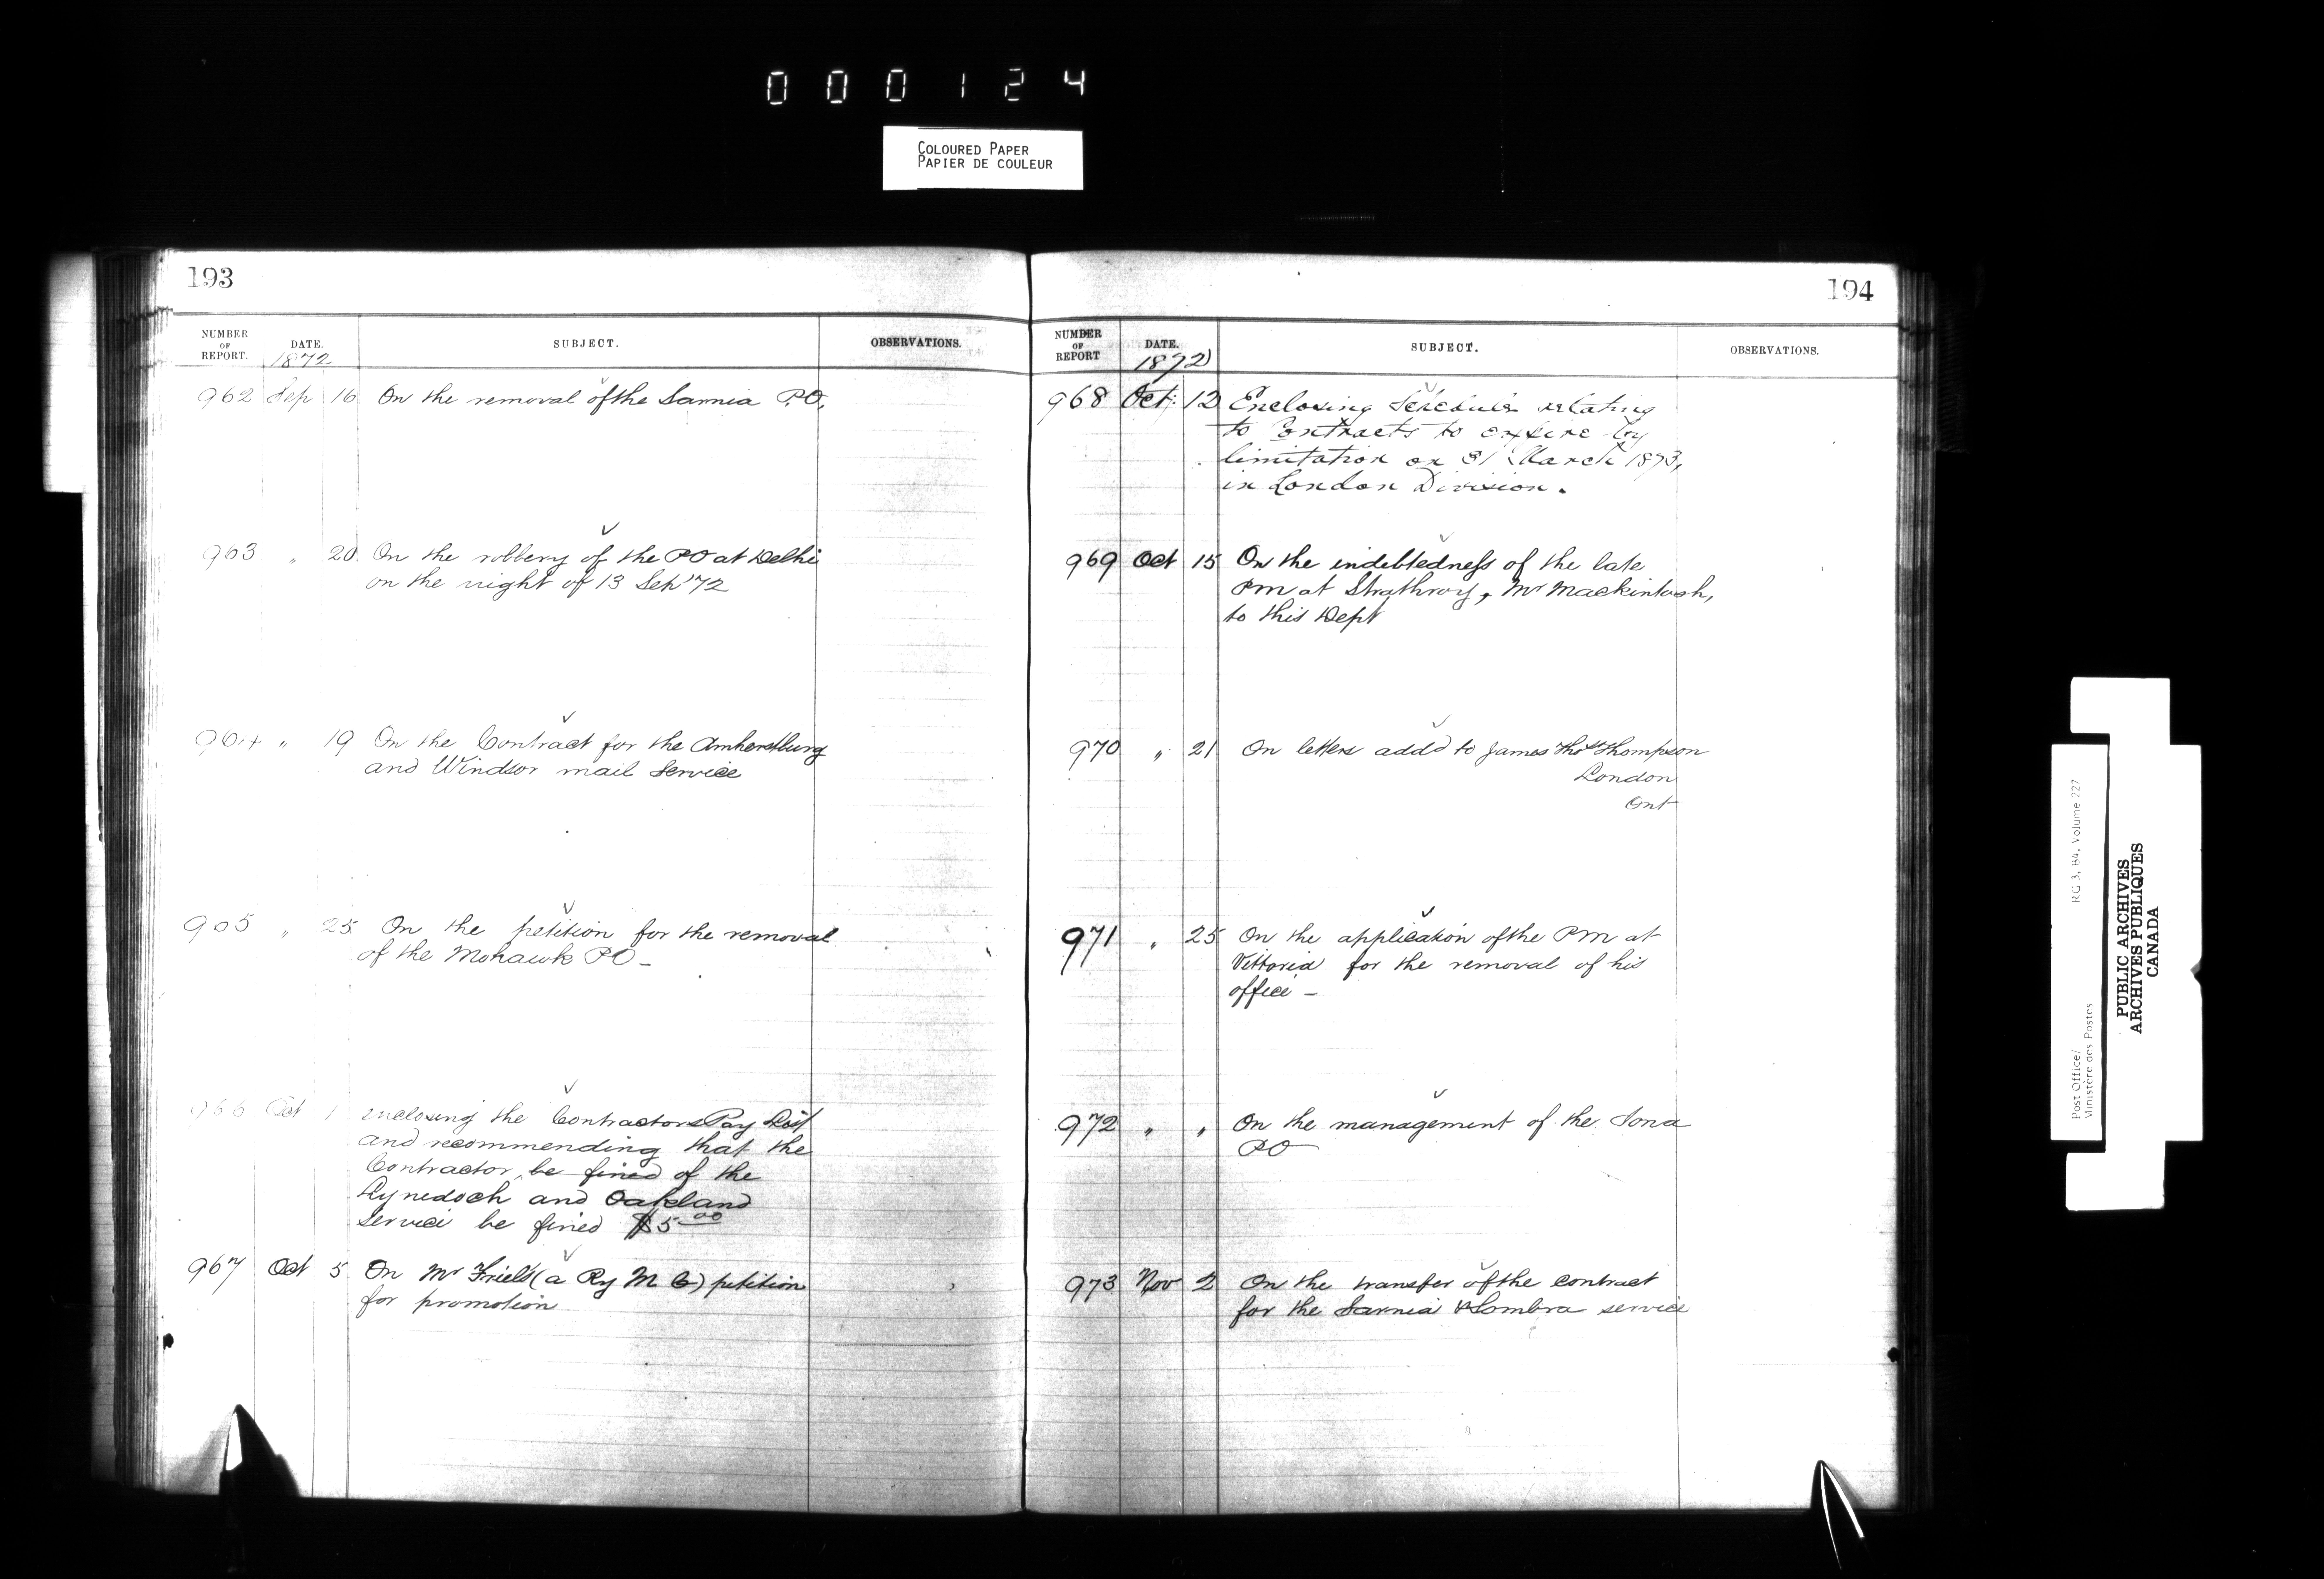 000124
COLOURED PAPER
PAPIER DE COULEUR
193
NUMBER OF REPORT. DATE. SUBJECT. OBSERVATIONS.
1872
962 Sep 16 On the removal of the Sarnia P.O.
963 " 20 On the robbery of the PO at Delhi
on the night of 13 Sep '72
964 " 19 On the Contract for the Amherstburg
and Windsor mail Service
965 " 25 On the petition for the removal
of the Mohawk PO –
966 Oct 1 Enclosing the Contractors Pay List
and recommending that the
Contractor be fined of the
Lynedoch and Oakland
service be fined $5.00
967 Oct 5 On Mr Friel's (a Ry M C) petition
for promotion
194
NUMBER OF REPORT DATE. SUBJECT. OBSERVATIONS.
1872
968 Oct: 12 Enclosing Schedule relating
to Contracts to expire by
limitation on 31 March 1873,
in London Division.
969 Oct 15 On the indebtedness of the late
PM at Strathroy, Mr Mackintosh,
to this Dept
970 " 21 On letters add'd to James Thos Thompson
London
Ont
971 " 25 On the application of the PM at
Vittoria for the removal of his
office –
972 " " On the management of the Iona
PO
973 Nov 2 On the transfer of the contract
for the Sarnia & Sombra service
Post Office/ RG 3, B4, Volume 227
Ministère des Postes
PUBLIC ARCHIVES
ARCHIVES PUBLIQUES
CANADA